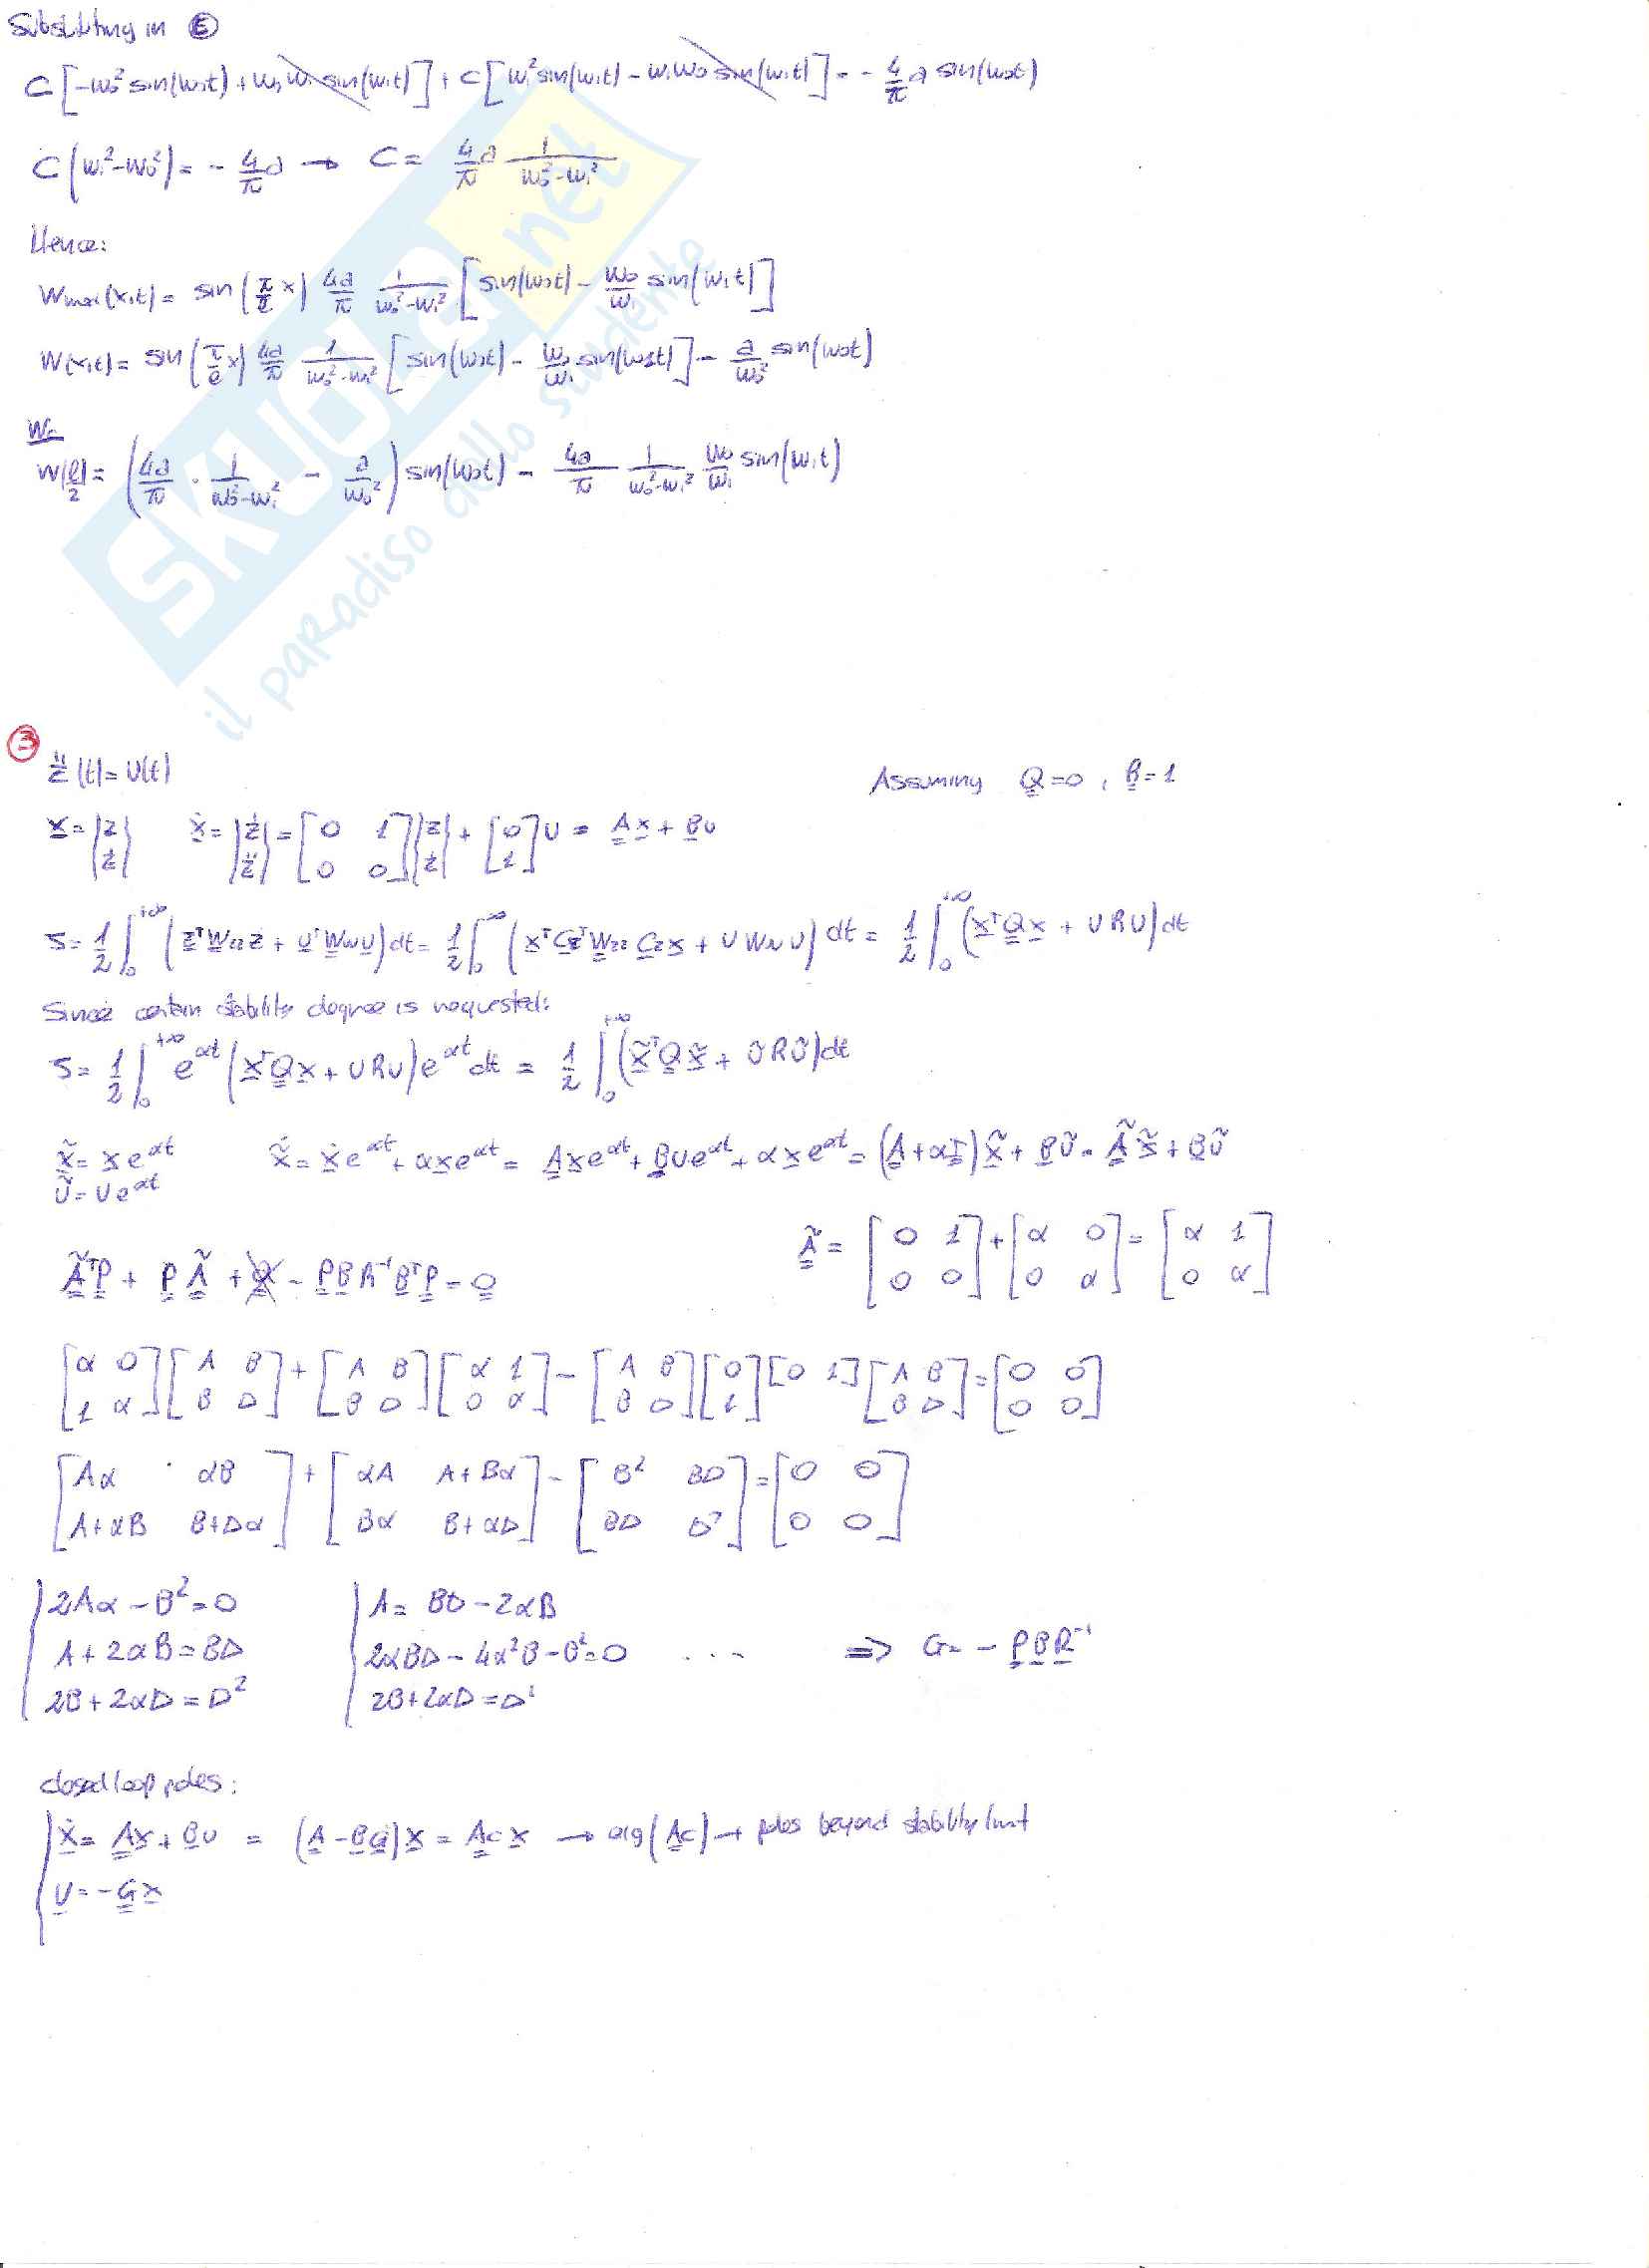 Substituting in Ⓔ
C[-ω₀² sin(ω₀t) + ω₀ω₁ sin(ω₁t)] + C[ω₁² sin(ω₀t) - ω₁ω₀ sin(ω₁t)] = - 4/π a sin(ω₀t)
C(ω₁²-ω₀²) = - 4/π a → C = 4/π a 1/(ω₀²-ω₁²)
Hence:
w(x,t) = sin(π/ℓ x) 4a/π 1/(ω₀²-ω₁²) [sin(ω₀t) - ω₀/ω₁ sin(ω₁t)]
w(x,t) = sin(π/ℓ x) 4a/π 1/(ω₀²-ω₁²) [sin(ω₀t) - ω₀/ω₁ sin(ω₁t)] - a/ω₀² sin(ω₀t)
w(ℓ/2) = (4a/π · 1/(ω₀²-ω₁²) - a/ω₀²) sin(ω₀t) - 4a/π 1/(ω₀²-ω₁²) ω₀/ω₁ sin(ω₁t)
SKUOLA.net
il paradiso dello studente
③
z̈(t) = U(t) Assuming Q=0, R=1
x = {z ż} ẋ = {ż z̈} = [0 1; 0 0]{z ż} + [0; 1] U = A x + B U
J = 1/2 ∫₀^+∞ (zᵀ Wzz z + Uᵀ Wuu U) dt = 1/2 ∫₀^∞ (xᵀ Czᵀ Wzz Cz x + U Wuu U) dt = 1/2 ∫₀^+∞ (xᵀ Q x + U R U) dt
Since certain stability degree is requested:
J = 1/2 ∫₀^+∞ e^αt (xᵀ Q x + U R U) e^αt dt = 1/2 ∫₀^+∞ (x̃ᵀ Q x̃ + Ũ R Ũ) dt
x̃ = x e^αt x̃̇ = ẋ e^αt + α x e^αt = A x e^αt + B U e^αt + α x e^αt = (A + αI) x̃ + B Ũ = Ã x̃ + B Ũ
Ũ = U e^αt
Ã = [0 1; 0 0] + [α 0; 0 α] = [α 1; 0 α]
Ãᵀ P + P Ã + Q - P B R⁻¹ Bᵀ P = 0
[α 0; 1 α][A B; B D] + [A B; B D][α 1; 0 α] - [A B; B D][0; 1][0 1][A B; B D] = [0 0; 0 0]
[Aα αB; A+αB B+Dα] + [αA A+Bα; Bα B+αD] - [B² BD; BD D²] = [0 0; 0 0]
2Aα - B² = 0 A = BD - 2αB
A + 2αB = BD 2αBD - 4α²B - B² = 0 ... ⇒ G = - P B R⁻¹
2B + 2αD = D² 2B + 2αD = D²
closed loop poles:
ẋ = A x + B U = (A - B G) x = Ac x → eig(Ac) → poles beyond stability limit
U = -G x